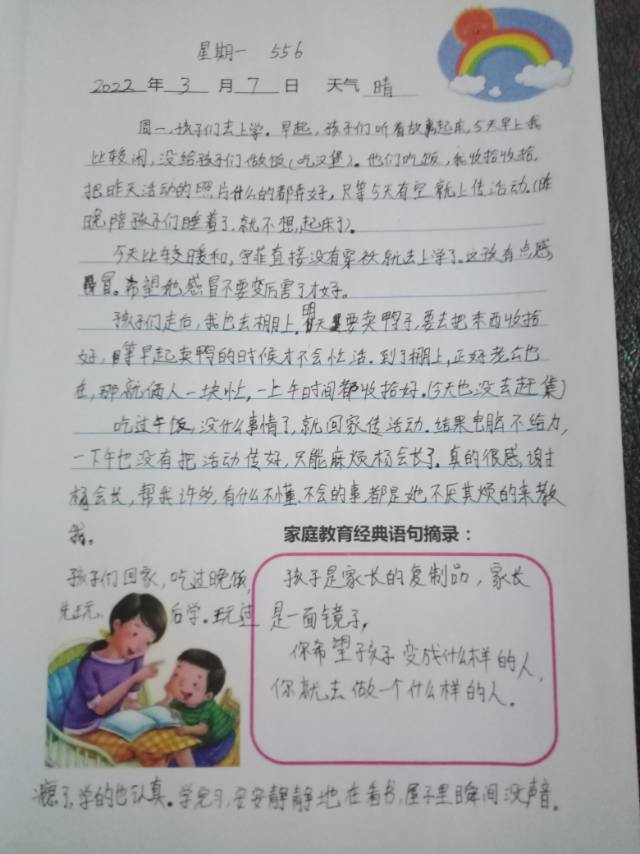 星期一 556
2022 年 3 月 7 日 天气 晴
周一,孩子们去上学。早起,孩子们听着故事起床,今天早上我
比较闲,没给孩子们做饭(吃汉堡)。他们吃饭,我收拾收拾,
把昨天活动的照片什么的都弄好,只等今天有空就上传活动。(昨
晚陪孩子们睡着了,就不想起床了)。
今天比较暖和,宇菲直接没有穿袄就去上学了。这孩有点感
冒。希望她感冒不要变厉害了才好。
孩子们走后,我也去棚上,明天要卖鸭子,要去把东西收拾
好,等早起卖鸭的时候才不会忙活。到了棚上,正好老公也
在,那就俩人一块忙,一上午时间都收拾好。(今天也没去赶集)
吃过午饭,没什么事情了,就回家传活动。结果电脑不给力,
一下午也没有把活动传好,只能麻烦杨会长了。真的很感谢
杨会长,帮我许多,有什么不懂、不会的事,都是她不厌其烦的来教
我。
家庭教育经典语句摘录:
孩子是家长的复制品,家长
是一面镜子,
你希望孩子变成什么样的人,
你就去做一个什么样的人。
孩子们回家,吃过晚饭,
先玩、后学。玩过
瘾了,学的也认真。学完习,安安静静地在看书,屋子里瞬间没声音。